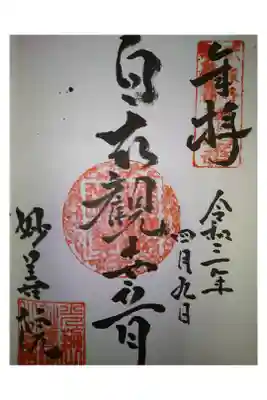 奉拝
令和三年
四月九日
白衣觀世音
妙善院